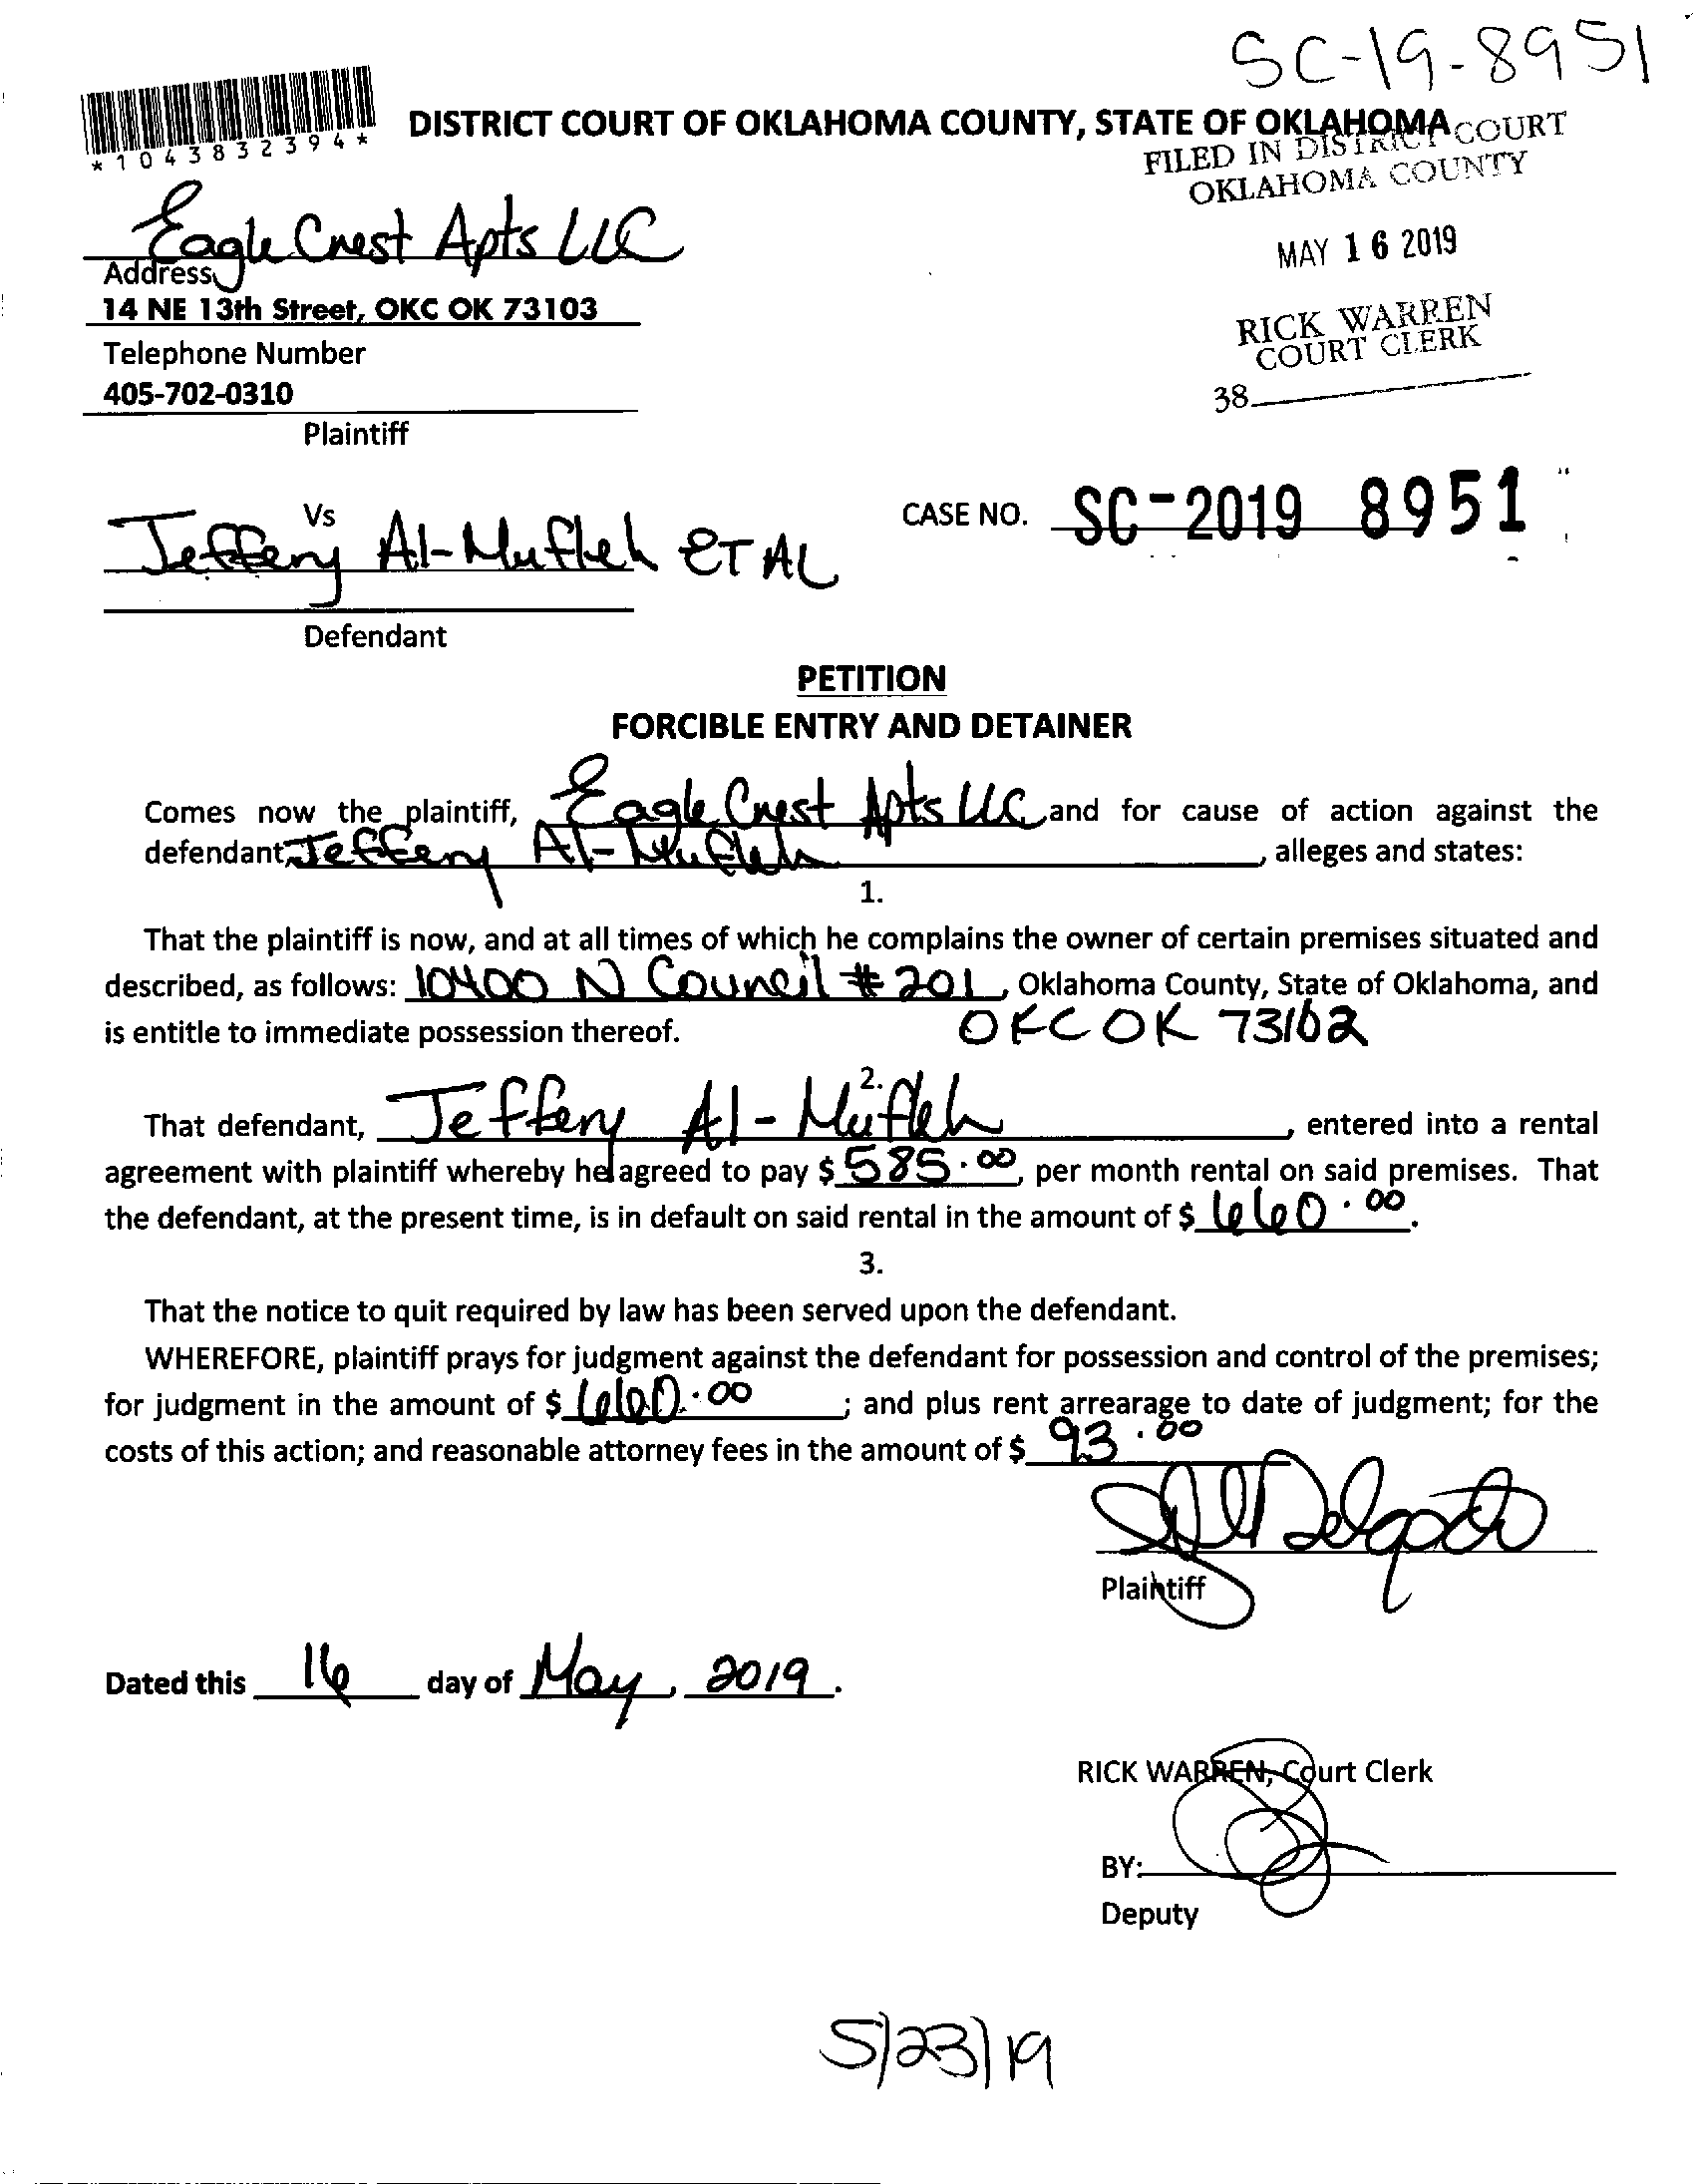 SC-19-8951
*1043832394*
DISTRICT COURT OF OKLAHOMA COUNTY, STATE OF OKLAHOMA
FILED IN DISTRICT COURT
OKLAHOMA COUNTY
MAY 16 2019
RICK WARREN
COURT CLERK
38
Eagle Crest Apts LLC
Address
14 NE 13th Street, OKC OK 73103
Telephone Number
405-702-0310
Plaintiff
Vs
Jeffery Al-Mufleh ET AL
CASE NO. SC-2019 8951
Defendant
PETITION
FORCIBLE ENTRY AND DETAINER
Comes now the plaintiff, Eagle Crest Apts LLC and for cause of action against the
defendant, Jeffery Al-Mufleh, alleges and states:
1.
That the plaintiff is now, and at all times of which he complains the owner of certain premises situated and
described, as follows: 10400 N Council # 201, Oklahoma County, State of Oklahoma, and
is entitle to immediate possession thereof. OKC OK 73162
2.
That defendant, Jeffery Al-Mufleh, entered into a rental
agreement with plaintiff whereby he agreed to pay $ 585.00, per month rental on said premises. That
the defendant, at the present time, is in default on said rental in the amount of $ 660.00.
3.
That the notice to quit required by law has been served upon the defendant.
WHEREFORE, plaintiff prays for judgment against the defendant for possession and control of the premises;
for judgment in the amount of $ 660.00; and plus rent arrearage to date of judgment; for the
costs of this action; and reasonable attorney fees in the amount of $ 93.00
Delgado
Plaintiff
Dated this 16 day of May, 2019.
RICK WARREN, Court Clerk
BY:
Deputy
5/23/19